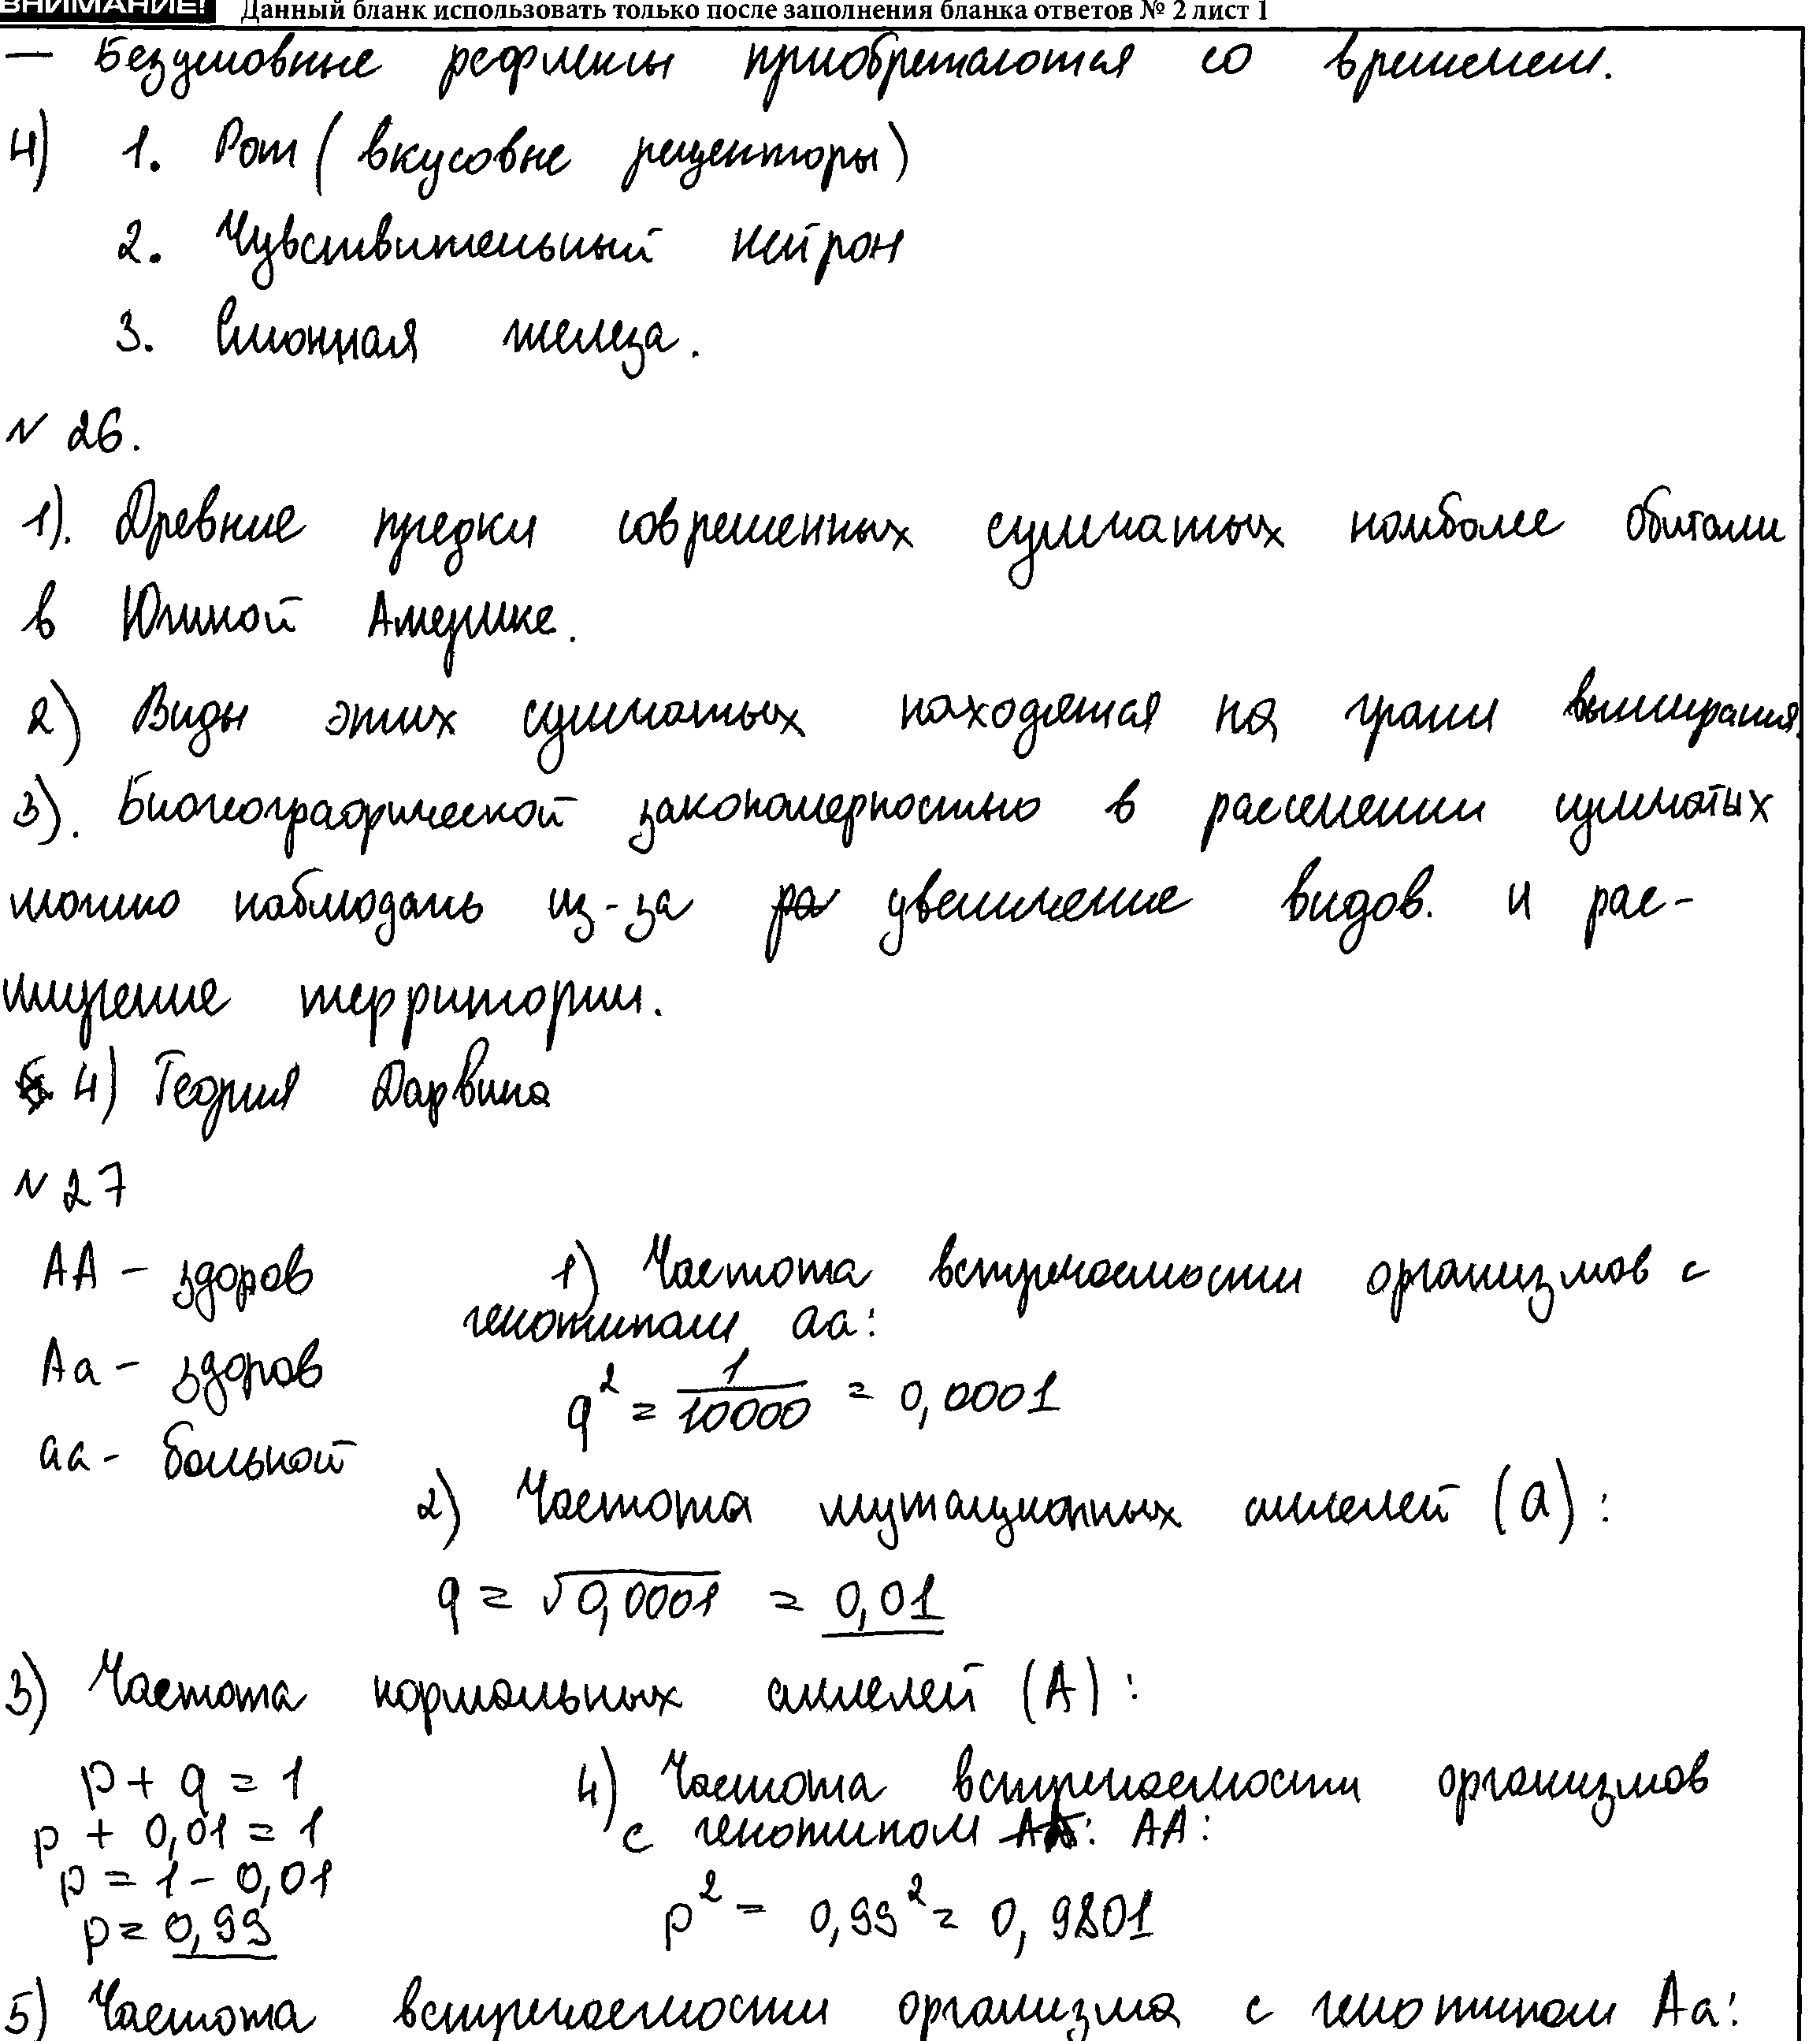 ВНИМАНИЕ! Данный бланк использовать только после заполнения бланка ответов № 2 лист 1
— Безусловные рефлексы приобретаются со временем.
4) 1. Рот (вкусовые рецепторы)
2. Чувствительный нейрон
3. Слюнная железа.
№ 26.
1). Древние предки современных сумчатых наиболее обитали
в Южной Америке.
2) Виды этих сумчатых находятся на грани вымирания.
3). Биогеографической закономерностью в расселении сумчатых
можно наблюдать из-за ра увеличение видов. и рас-
ширение территории.
4) Теория Дарвина
№ 27
АА – здоров
1) Частота встречаемости организмов с
генотипом аа:
Аа – здоров
q² = 1/10000 = 0,0001
аа – больной
2) Частота мутационных аллелей (а):
q = √0,0001 = 0,01
3) Частота нормальных аллелей (А):
p + q = 1
4) Частота встречаемости организмов
p + 0,01 = 1
с генотипом АА: АА:
p = 1 – 0,01
p = 0,99
p² = 0,99² = 0,9801
5) Частота встречаемости организма с генотипом Аа: